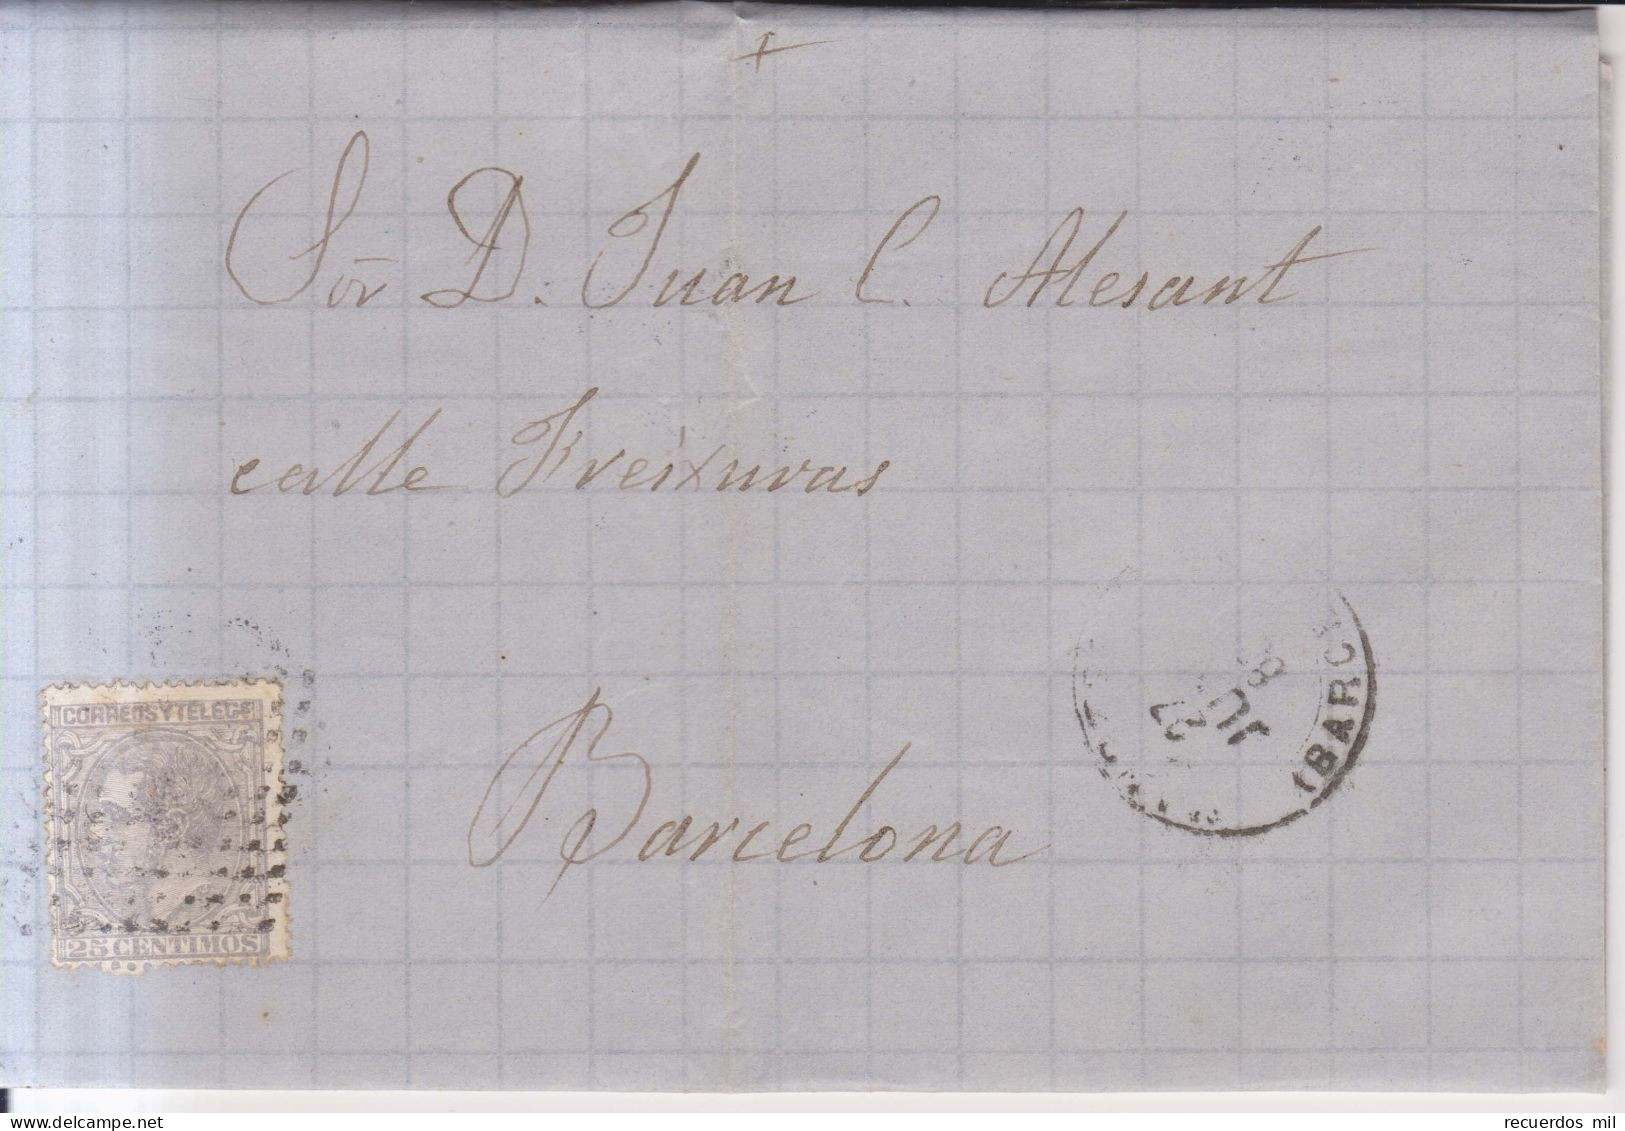 Sōr D. Juan C. Alesant
calle Freixuras
Barcelona
CORREOS Y TELEGS
25 CENTIMOS
27
JU
8
(BARCE
recuerdos mil